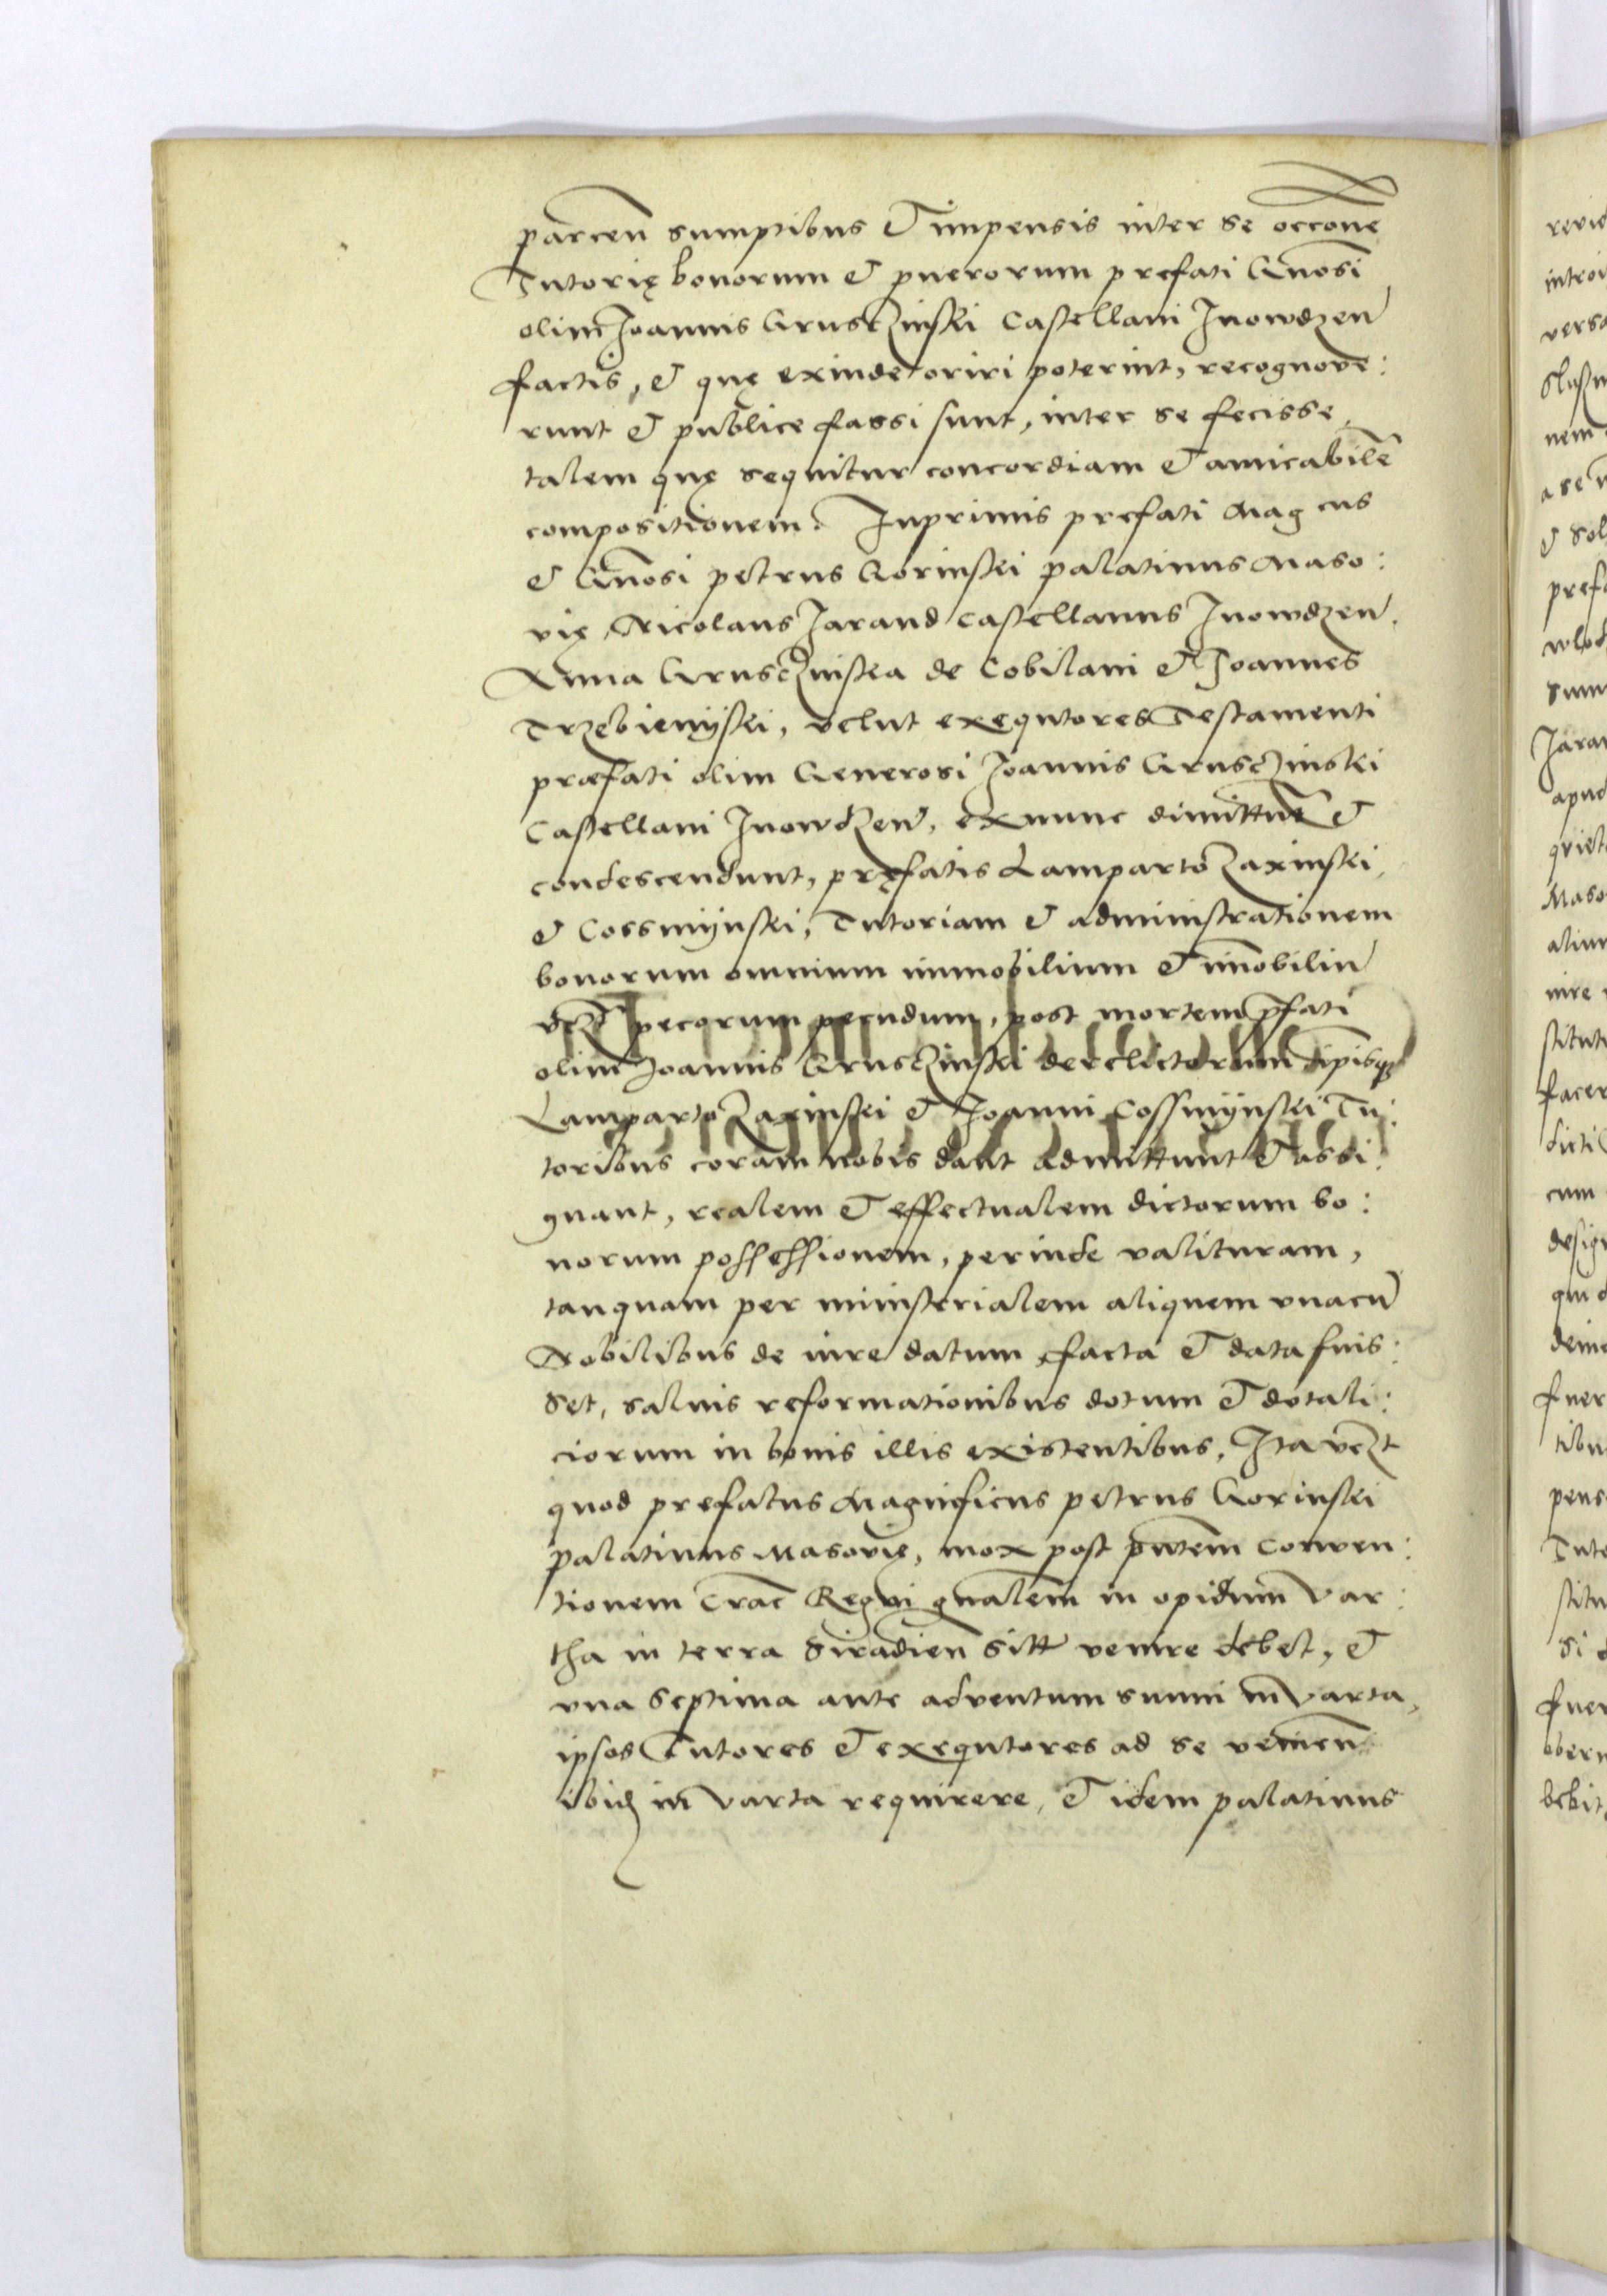 parcen̄ sumptibus & impensis inter se occōne
Tutorię bonorum & puerorum prefati Gn̄osi
olim Joannis Gruszczinski Castellani Jnowdzen̄
factis, & quę exinde oriri poterint, recognove:
runt & publice fassi sunt, inter se fecisse,
talem quę sequitur concordiam & amicabilē
compositionem. Inprimis prefati Mag cus
& Gn̄osi petrus Gorinski palatinus Maso:
vię, Nicolaus Jarand Castellanus Jnowdzen̄.
Anna Gruszczinska de Cobilani & Joannes
Trzebienijski, velut exequtores Testamenti
præfati olim Generosi Joannis Gruszczinski
Castellani Jnowdzen̄, ex nunc dimittūt &
condescendunt, pręfatis Lamparto Zaxinski,
& Cossmijnski, Tutoriam & administrationem
bonorum omnium immobilium & im̄obiliū
vcz̄t pecorum pecudum, post mortem p̄fati
olim Joannis Gruszczinski derelictorum ip̄isq3
Lamparto Zaxinski & Joanni Cossmijnski Tu:
toribus coram nobis dant admittunt & assi:
gnant, realem & effectualem dictorum bo:
norum possessionem, perinde valituram,
tanquam per ministerialem aliquem vnacū
Nobilibus de iure datum, facta & data fuis:
set, salvis reformationibus dotum & dotali:
ciorum in bonis illis existentibus. Ita vcz̄t
quod prefatus Magnificus petrus Gorinski
palatinus Masovię, mox post pn̄tem Conven:
tionem Crac̄ Regni gn̄alem in opidum Var:
tha in terra Siradien̄ sitt̄ venire debet, &
vna septima ante adventum suum in Varta,
ipsos Tutores & exequtores ad se venien̄
ibid in Varta requirere, & idem palatinus